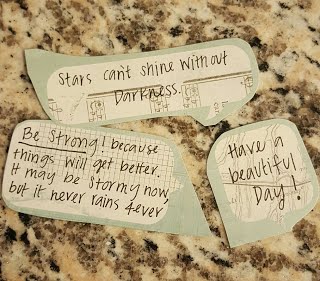 Stars can't shine without
Darkness.
Be Strong! because
things will get better.
It may be stormy now,
but it never rains 4ever
Have a
beautiful
Day!